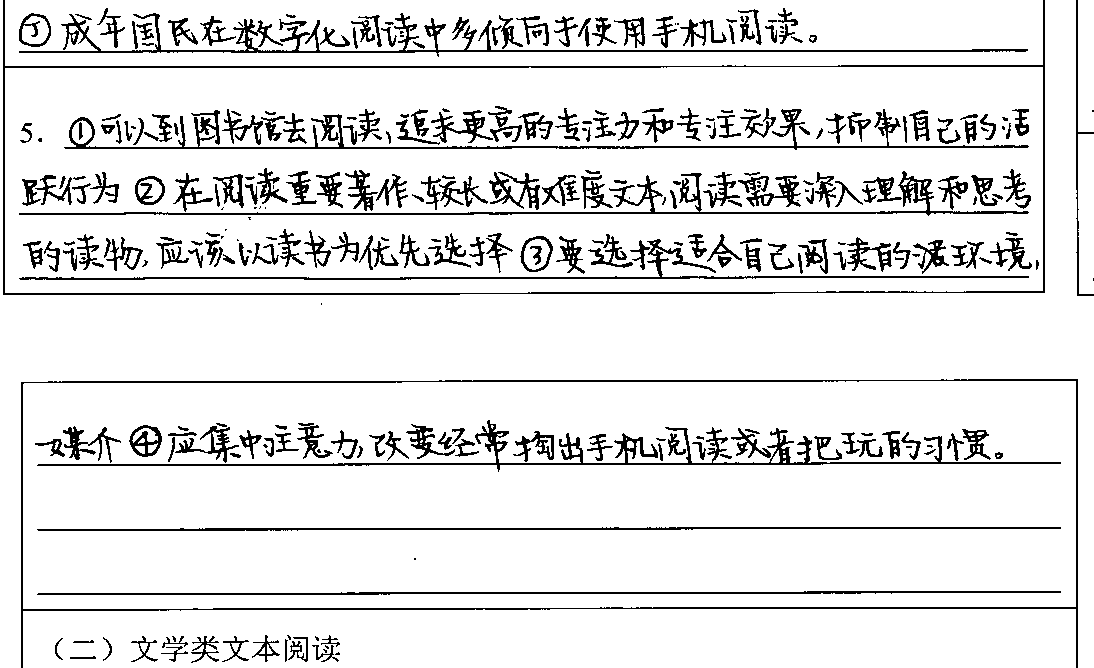 ③成年国民在数字化阅读中多倾向于使用手机阅读。
5. ①可以到图书馆去阅读,追求更高的专注力和专注效果,抑制自己的活
跃行为 ② 在阅读重要著作、较长或有难度文本,阅读需要深入理解和思考
的读物,应该以读书为优先选择 ③要选择适合自己阅读的环境,
媒介 ④应集中注意力,改变经常掏出手机阅读或者把玩的习惯。
（二）文学类文本阅读